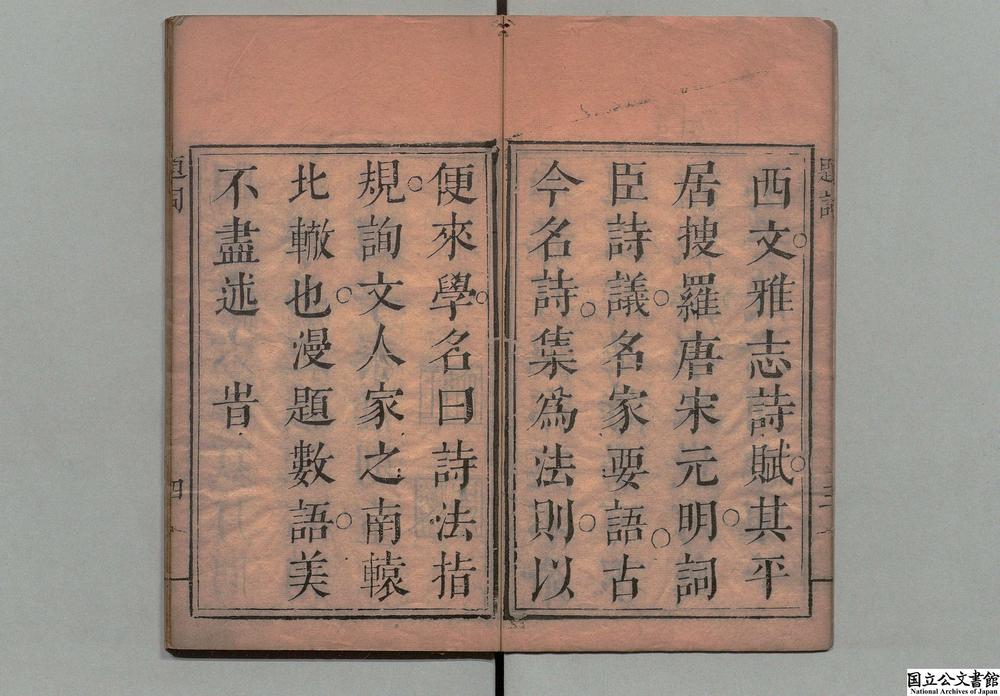 西文雅志詩賦其平
居搜羅唐宋元明詞
臣詩議名家要語古
今名詩集爲法則以
便來學名曰詩法指
規詢文人家之南轅
北轍也漫題數語美
不盡述 旹
題詞
四
国立公文書館
National Archives of Japan